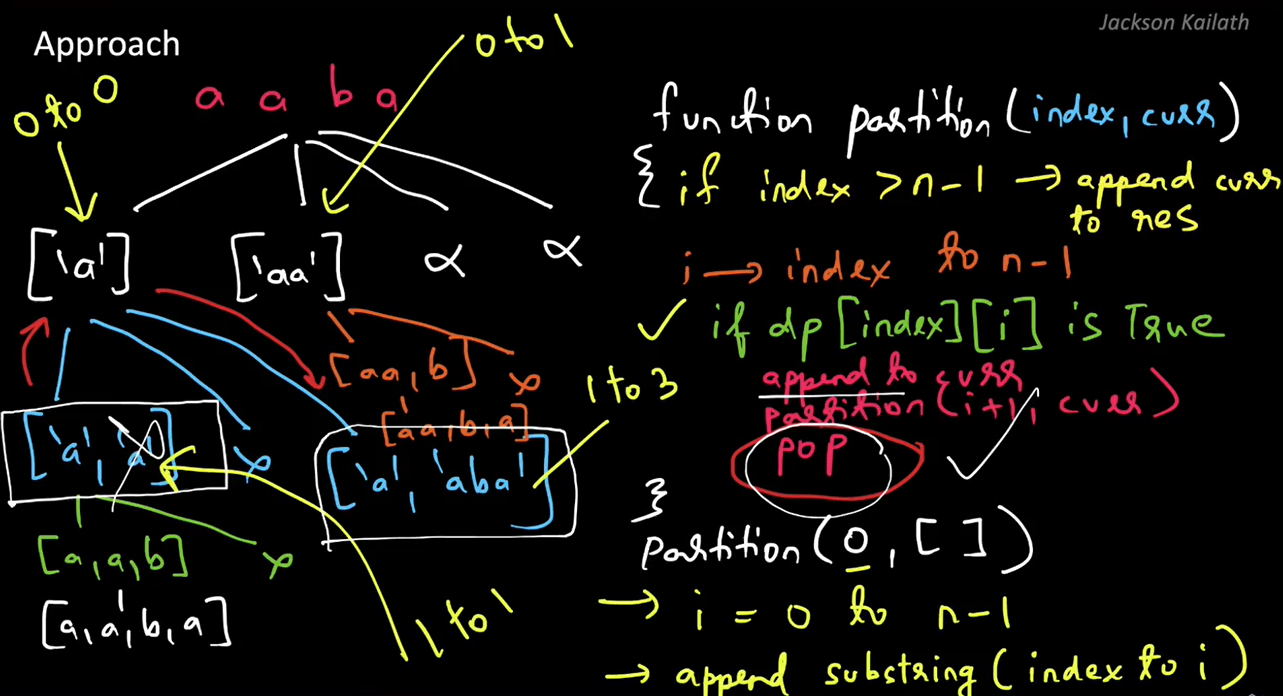 Jackson Kailath
Approach
0 to 0
a a b a
0 to 1
['a'] ['aa'] ∝ ∝
[aa, b] ×
[aa, b, a]
1 to 3
['a', 'a'] × ['a', 'aba']
[a, a, b] ×
[a, a, b, a]
1 to 1
function partition(index, curr)
{ if index > n-1 → append curr
to res
i → index to n-1
✓ if dp[index][i] is True
append to curr
partition(i+1, curr)
pop
}
partition(0, [ ])
→ i = 0 to n-1
→ append substring(index to i)